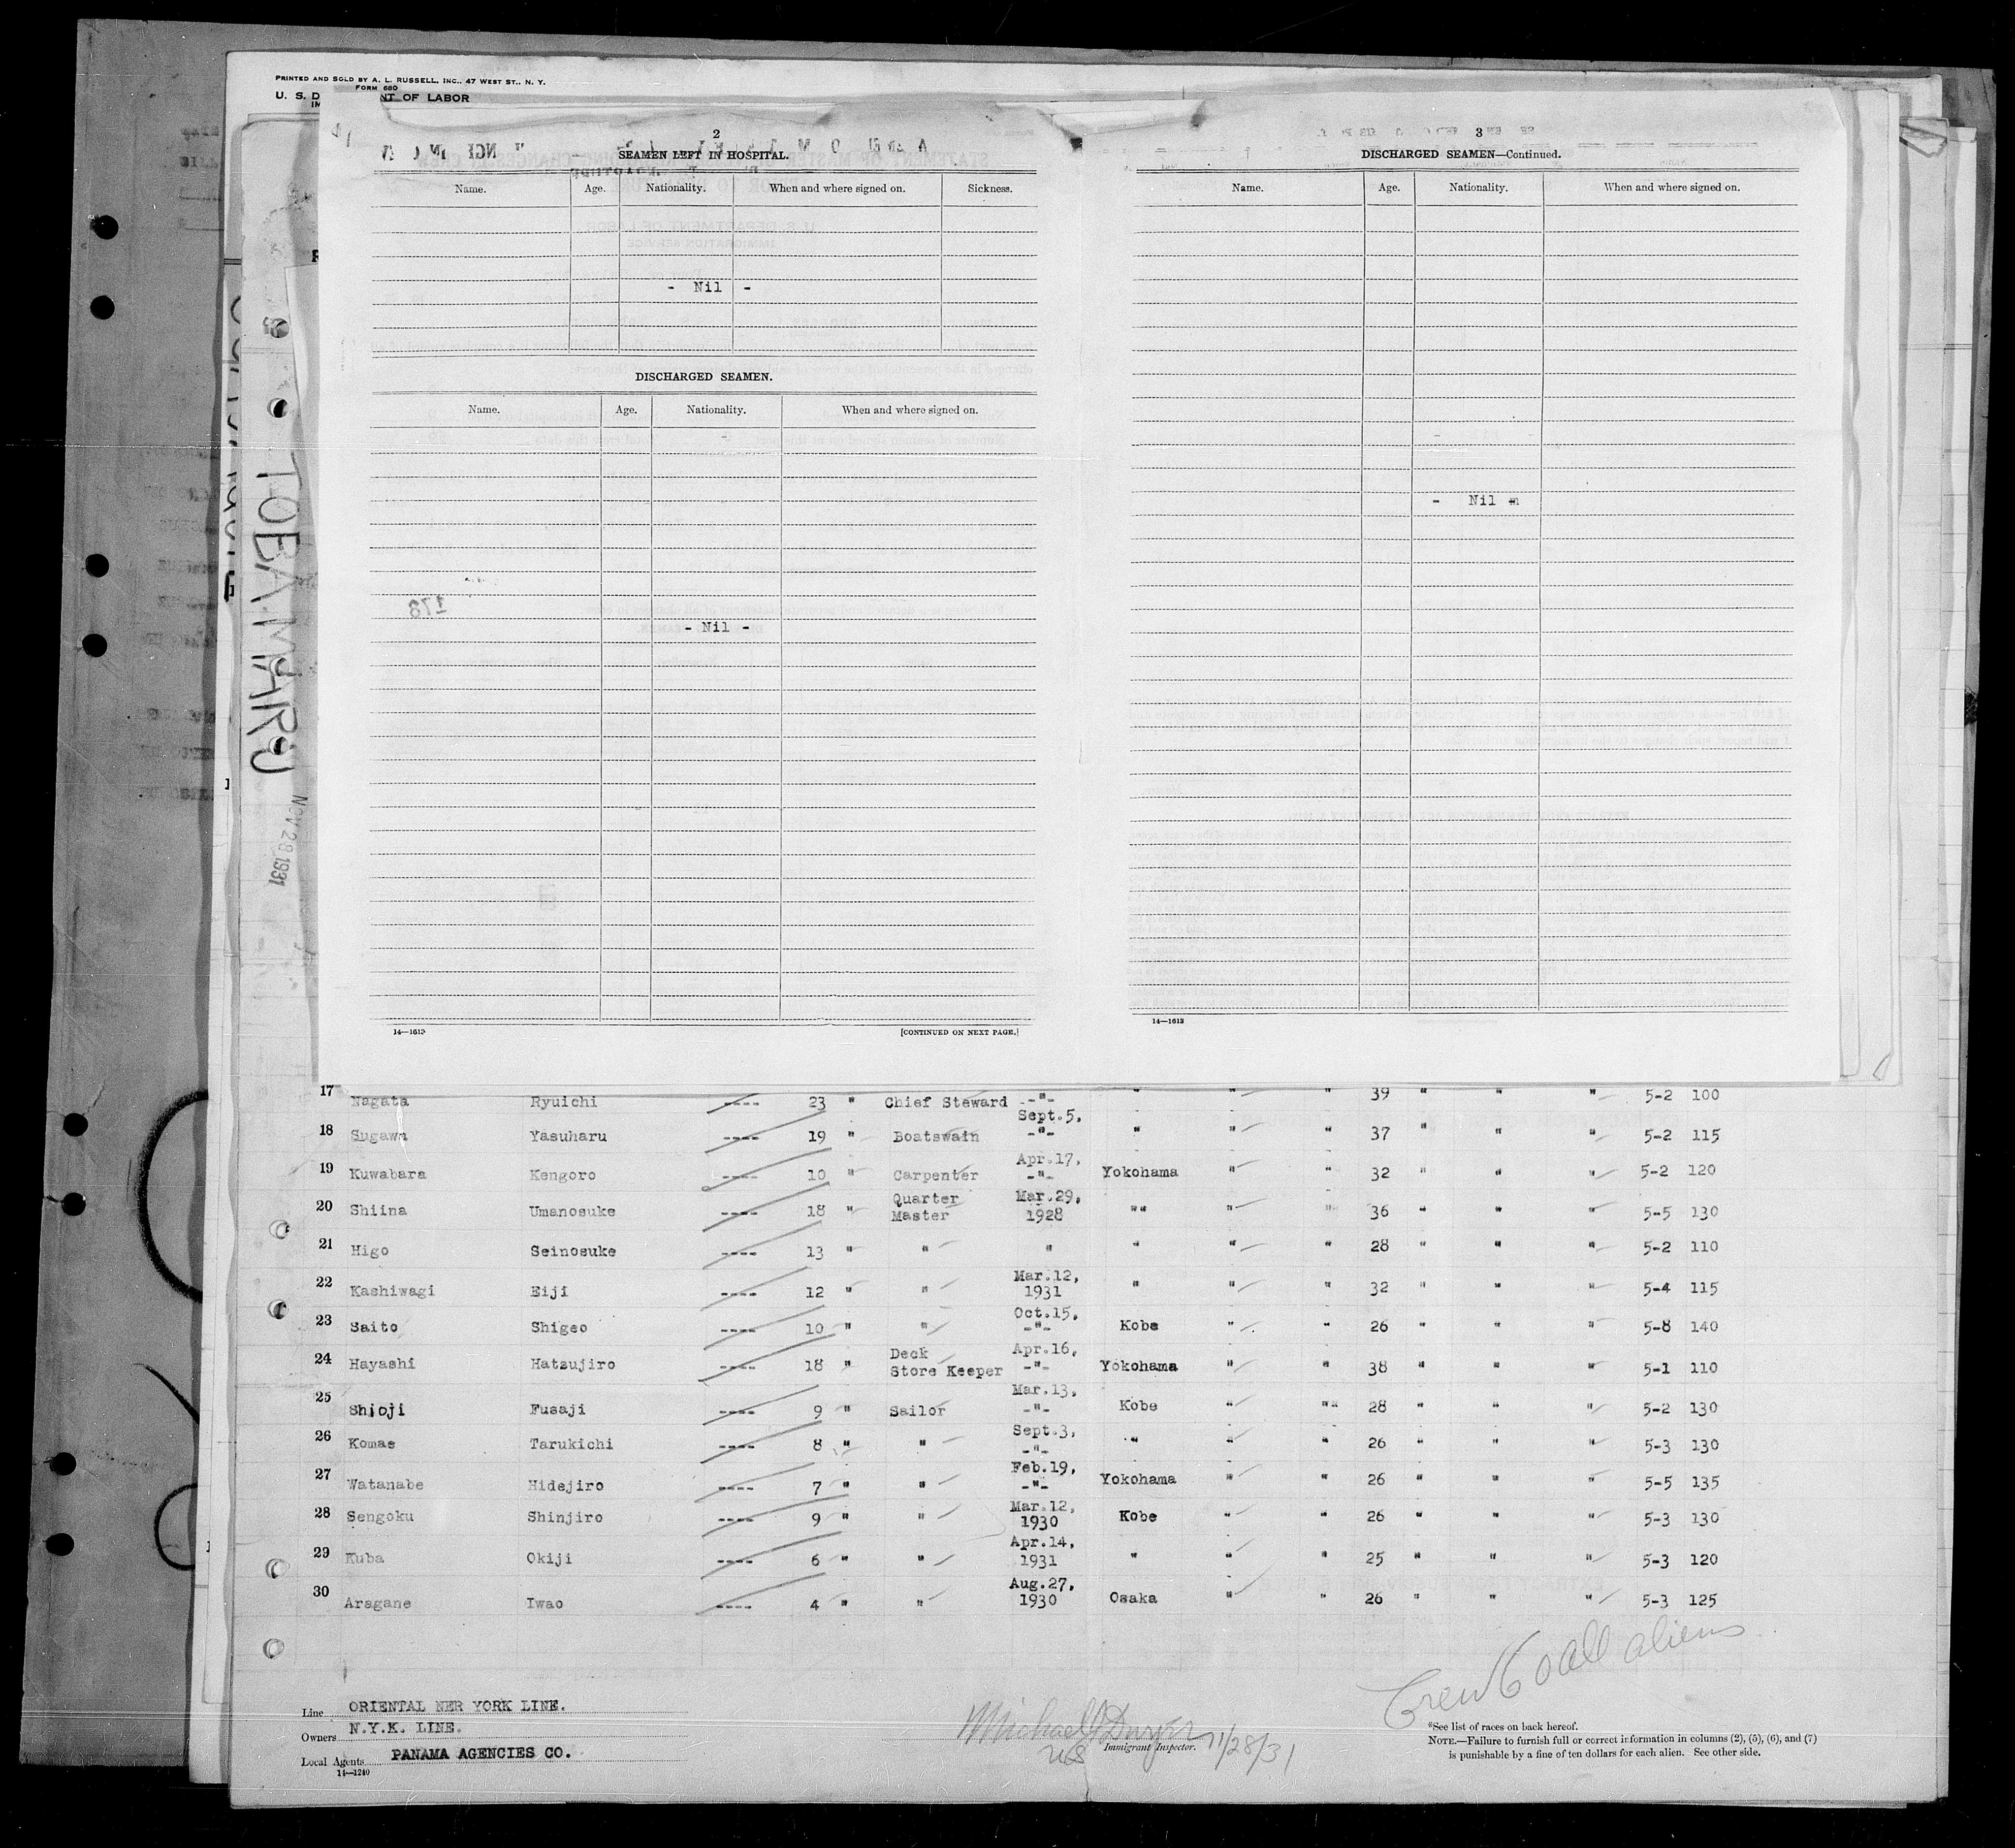 PRINTED AND SOLD BY A. L. RUSSELL, INC., 47 WEST ST., N. Y.
FORM 680
U. S. D NT OF LABOR
IM
TOBA MARU
NOV 28 1931
2
SEAMEN LEFT IN HOSPITAL.
Name. Age. Nationality. When and where signed on. Sickness.
- Nil -
DISCHARGED SEAMEN.
Name. Age. Nationality. When and where signed on.
173
- Nil -
14—1613
[CONTINUED ON NEXT PAGE.]
3
DISCHARGED SEAMEN—Continued.
Name. Age. Nationality. When and where signed on.
- Nil -
14—1613
17 Nagata Ryuichi ---- 23 " Chief Steward -"- " " " 39 " " " 5-2 100
18 Sugawa Yasuharu ---- 19 " Boatswain Sept.5, -"- " " " 37 " " " 5-2 115
19 Kuwabara Kengoro ---- 10 " Carpenter Apr.17, -"- Yokohama " " 32 " " " 5-2 120
20 Shiina Umanosuke ---- 18 " Quarter Master Mar.29, 1928 "" " " 36 " " " 5-5 130
21 Higo Seinosuke ---- 13 " " " " " " 28 " " " 5-2 110
22 Kashiwagi Eiji ---- 12 " " Mar.12, 1931 " " " 32 " " " 5-4 115
23 Saito Shigeo ---- 10 " " Oct.15, -"- Kobe " " 26 " " " 5-8 140
24 Hayashi Hatsujiro ---- 18 " Deck Store Keeper Apr.16, -"- Yokohama " " 38 " " " 5-1 110
25 Shioji Fusaji ---- 9 " Sailor Mar.13, -"- Kobe " "" 28 " " " 5-2 130
26 Komae Tarukichi ---- 8 " " Sept.3, -"- " " " 26 " " " 5-3 130
27 Watanabe Hidejiro ---- 7 " " Feb.19, -"- Yokohama " " 26 " " " 5-5 135
28 Sengoku Shinjiro ---- 9 " " Mar.12, 1930 Kobe " " 26 " " " 5-3 130
29 Kuba Okiji ---- 6 " " Apr.14, 1931 " " " 25 " " " 5-3 120
30 Aragane Iwao ---- 4 " " Aug.27, 1930 Osaka " " 26 " " " 5-3 125
Crew 60 all aliens
Line ORIENTAL NER YORK LINE.
Owners N.Y.K. LINE.
Local Agents PANAMA AGENCIES CO.
14—1240
Michael J Dwyer 11/28/31
Immigrant Inspector.
*See list of races on back hereof.
NOTE.—Failure to furnish full or correct information in columns (2), (5), (6), and (7)
is punishable by a fine of ten dollars for each alien. See other side.